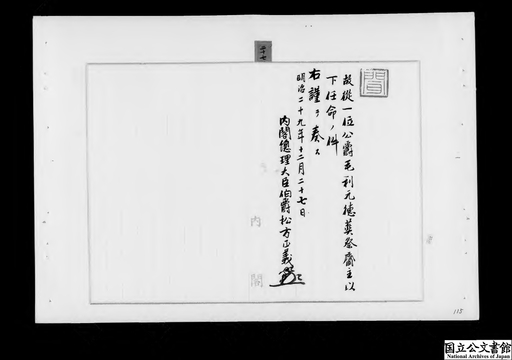 聞
故從一位公爵毛利元德葬祭齋主以
下任命ノ件
右謹テ奏ス
明治二十九年十二月二十七日
内閣總理大臣伯爵松方正義
内閣
115
国立公文書館
National Archives of Japan